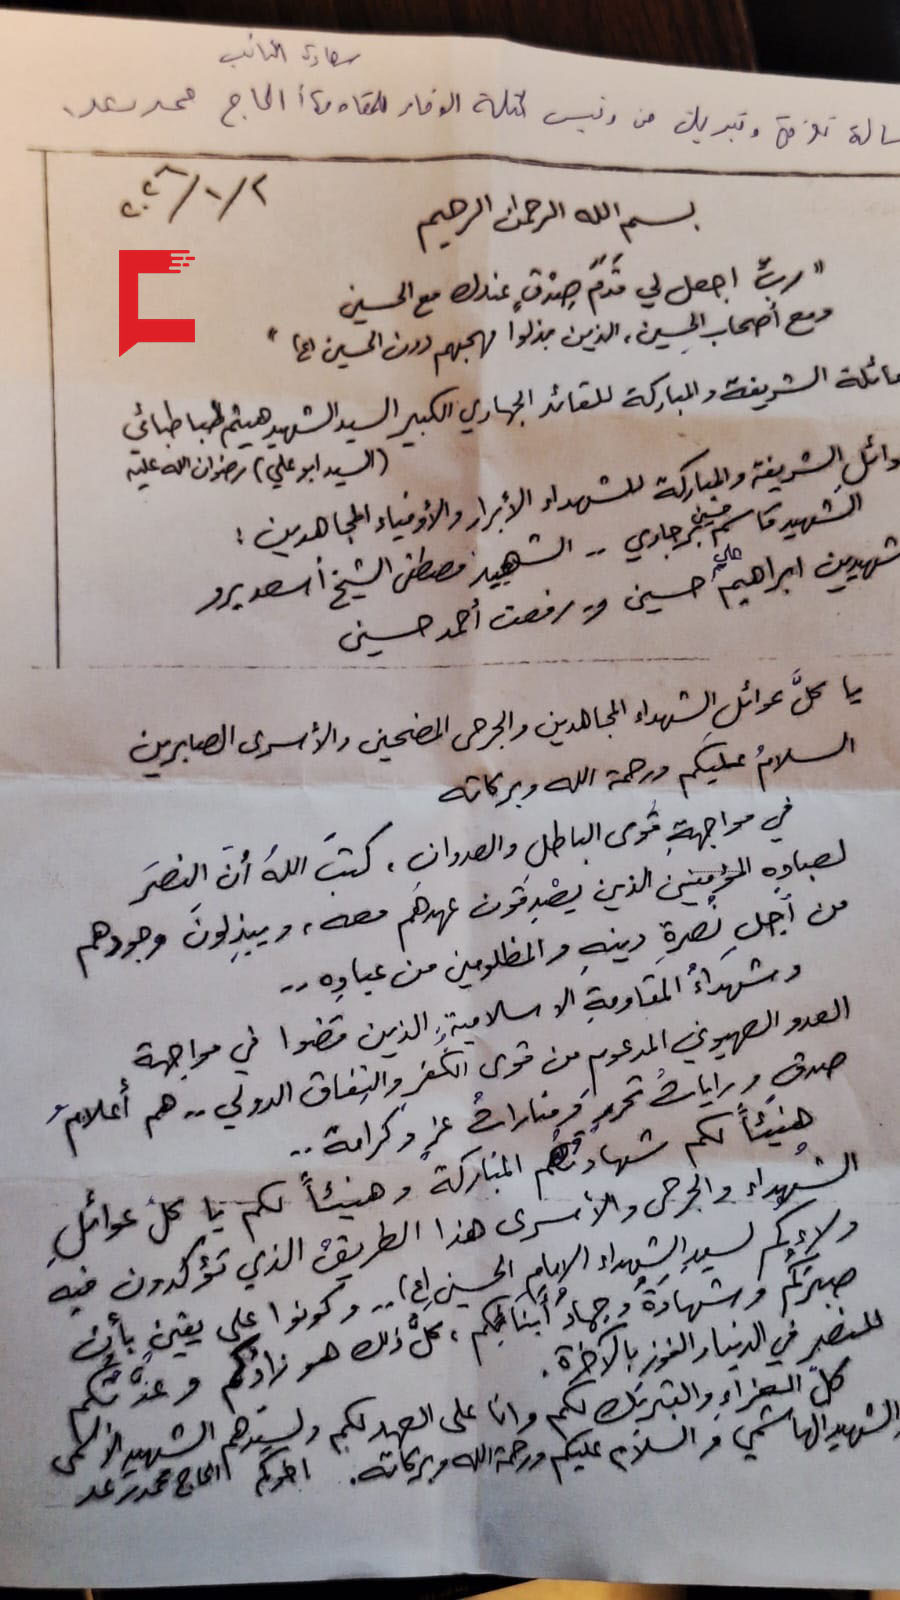 سعادة النائب
سالة تعزية وتبريك من رئيس كتلة الوفاء للمقاومة أ الحاج محمد رعد.
٢٠٢٦/١/٢
بسم الله الرحمن الرحيم
" ربِّ اجعل لي قَدَمَ صِدْقٍ عندك مع الحسين
ومع أصحاب الحسين، الذين بذلوا مهجهم دون الحسين (ع) "
عائلة الشريفة والمباركة للقائد الجهادي الكبير السيد الشهيد هيثم طباطبائي
(السيد ابو علي) رضوان الله عليه
وائل الشريفة والمباركة للشهداء الأبرار والأوفياء المجاهدين :
الشهيد قاسم حسين برجاوي .. الشهيد مصطفى الشيخ أسعد برو
شهيدين ابراهيم علي حسين و رفعت أحمد حسين
يا كلَّ عوائل الشهداء المجاهدين والجرحى المضحين والأسرى الصابرين
السلامُ عليكم ورحمة الله وبركاته
في مواجهةِ قُوى الباطل والعدوان، كتبَ اللهُ أنَ النصرَ
لعبادِه المؤمنين الذين يصْدِقُون عهدهَم معه، ويبذِلونَ وجودهم
من أجلِ نُصرةِ دينهِ والمظلومين من عبادِه ..
وشهداءُ المقاومةِ الاسلاميةِ، الذين قضوا في مواجهة
العدو الصهيوني المدعوم من قوى الكفرِ والنِفاق الدولي .. هم أعلامُ
صدقٍ وراياتُ تحررٍ ومناراتُ عزٍ وكرامة ..
هنيئاً لكم شهادتُهم المباركة وهنيئاً لكم يا كلَّ عوائلِ
الشهداء والجرحى والأسرى هذا الطريقُ الذي تؤكدون فيه
ولاءكم لسيدِ الشهداء الإمام الحسين (ع) .. وكونوا على يقينٍ بأنَ
صبرَكُم وشهادةُ وجهادُ أبنائكم، كلُّ ذلك هو زادُكُم وعدّتُكُم
للنصر في الدنيا والفوز بالآخرة.
كلّ العزاءِ والتبريك لكم وانا على العهد لكم ولسيّدهم الشهيد الأسمى
والشهيد الهاشمي والسلام عليكم ورحمة الله وبركاته. اخوكم الحاج محمد رعد